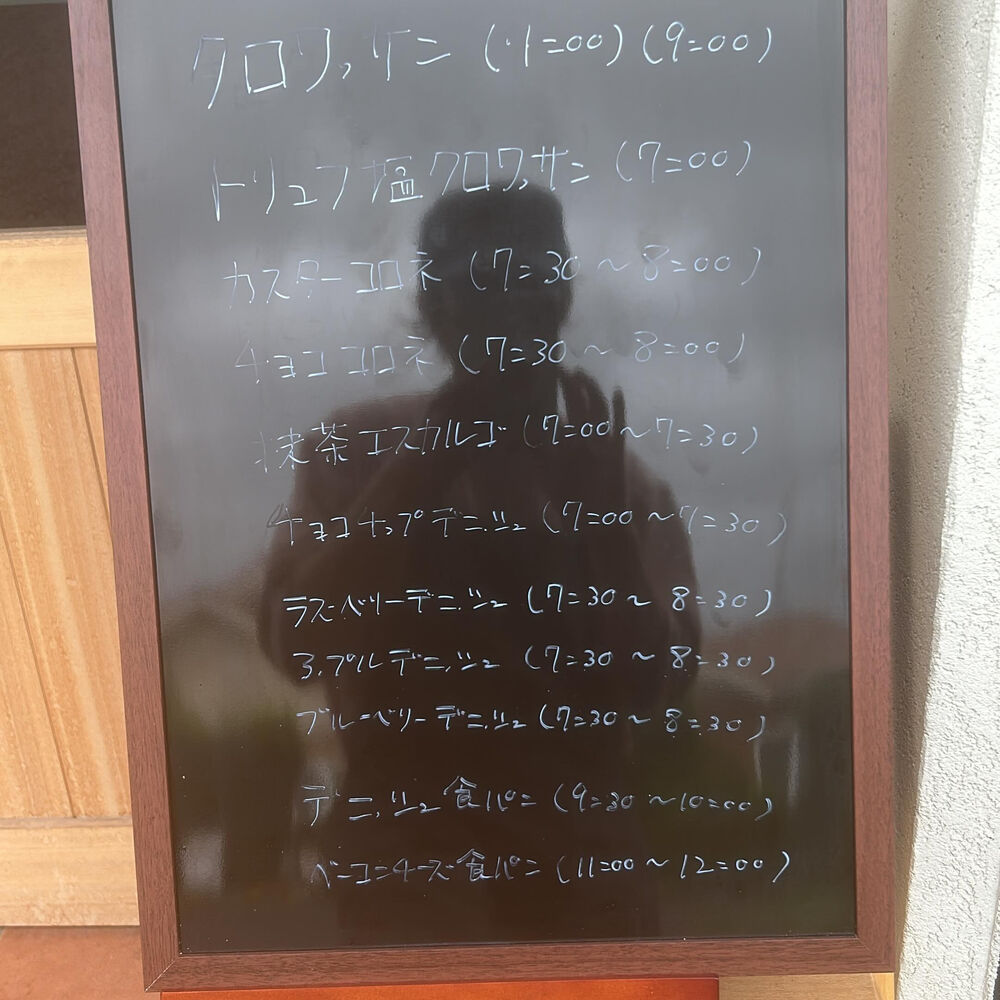 クロワッサン (7:00) (9:00)
トリュフ塩クロワッサン (7:00)
カスターコロネ (7:30〜8:00)
チョココロネ (7:30〜8:00)
抹茶エスカルゴ (7:00〜7:30)
チョコチップデニッシュ (7:00〜7:30)
ラズベリーデニッシュ (7:30〜8:30)
アップルデニッシュ (7:30〜8:30)
ブルーベリーデニッシュ (7:30〜8:30)
デニッシュ食パン (9:30〜10:00)
ベーコンチーズ食パン (11:00〜12:00)